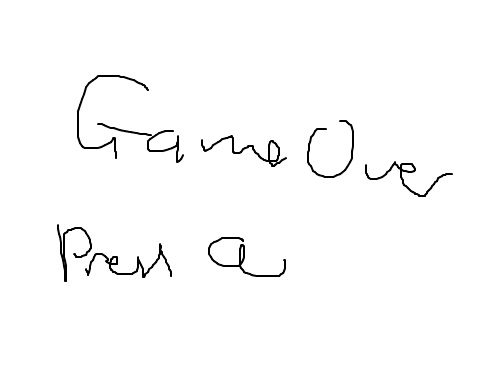 Game Over
Press a